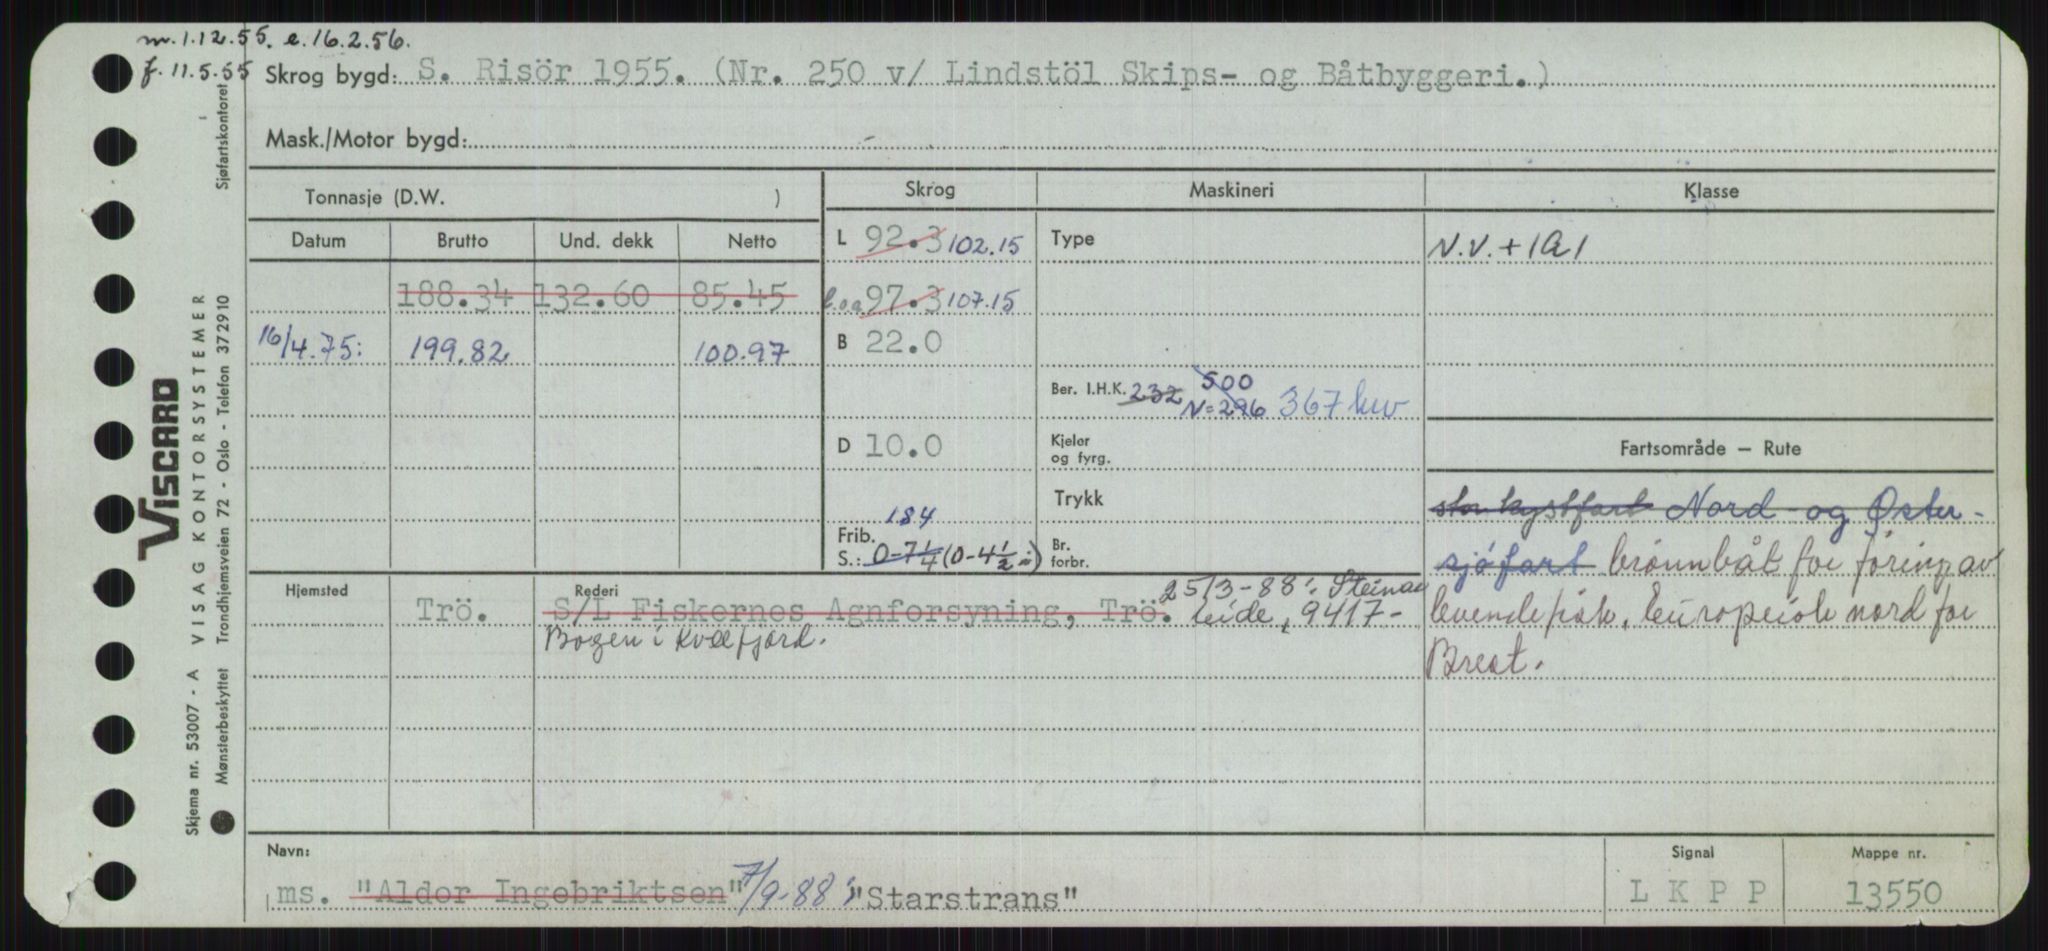 m. 1.12.55. e. 16.2.56.
f. 11.5.55 Skrog bygd: S. Risör 1955. (Nr. 250 v/ Lindstöl Skips- og Båtbyggeri.)
Mask./Motor bygd:
Tonnasje (D.W. ) Skrog Maskineri Klasse
Datum Brutto Und. dekk Netto L 92.3 102.15 Type N.V. + 1A1
188.34 132.60 85.45 l.o.a 97.3 107.15
16/4.75: 199.82 100.97 B 22.0
Ber. I.H.K. 232 500 N=296 367 kw
D 10.0 Kjeler og fyrg. Fartsområde – Rute
Trykk stor kystfart Nord- og Øster-
184
Frib. S.: 0-7 1/4 (0-4 1/2 i) Br. forbr. sjöfart brönnbåt for föring av
Hjemsted Rederi 25/3-88: Steinar
Trö. S/L Fiskernes Agnforsyning, Trö. Eide, 9417- levende fisk. Europeisk nord for
Bogen i Kvæfjord. Brest.
Navn: Signal Mappe nr.
ms. "Aldor Ingebriktsen" 7/9-88: "Starstrans" L K P P 13550
VISCARD
VISAG KONTORSYSTEMER
Skjema nr. 53007 - A
Mønsterbeskyttet Trondhjemsveien 72 - Oslo - Telefon 372910 Sjøfartskontoret